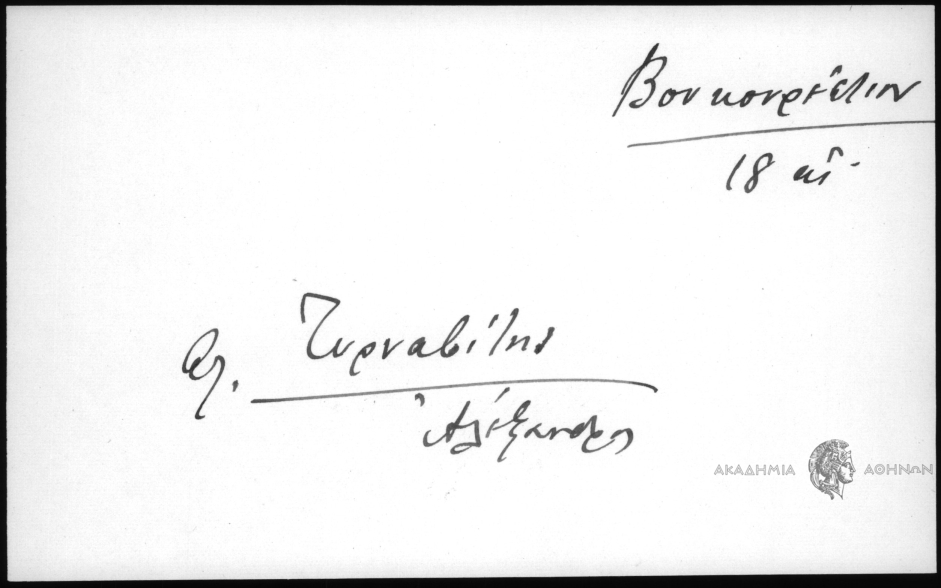 Βουκουρέστιον
18 αἰ.
βλ. Τυρναβίτης
Ἀλέξανδρος
ΑΚΑΔΗΜΙΑ ΑΘΗΝΩΝ